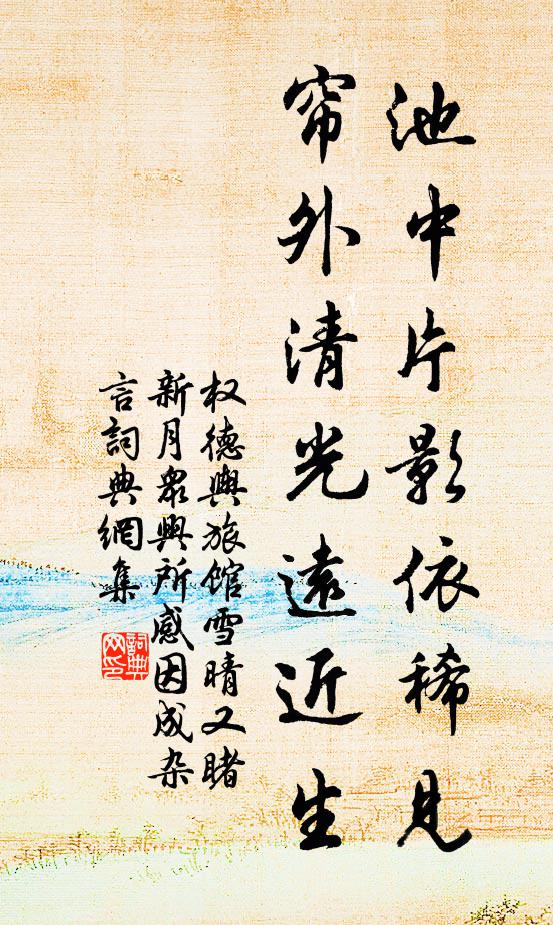 池中片影依稀見
帘外清光遠近生
权德輿旅馆雪晴又睹
新月眾興所感因成杂
言詞典網集
詞典
网印